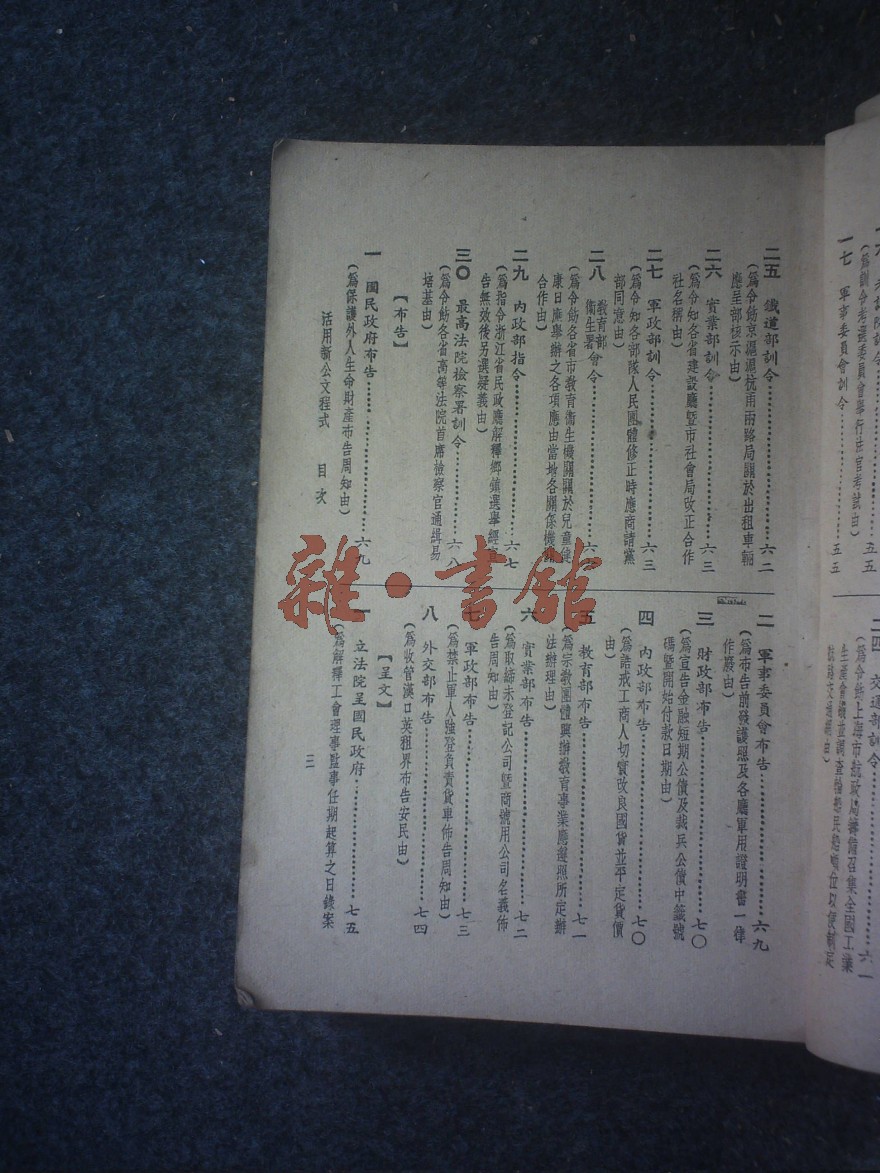 一七　軍事委員會訓令………五五
二五　鐵道部訓令………六二
(爲令飭京滬滬杭甬兩路局關於出租車輛
應呈部核示由)
二六　實業部訓令………六三
(爲令知各省建設廳曁市社會局改正合作
社名稱由)
二七　軍政部訓令………六三
(爲令知各部隊人民團體修正時應商請黨
部同意由)
二八　教育部衞生署會令………六
(爲令飭各省市教育衞生機關關於兒童健
康日應舉辦之各項應由當地各關係機
合作由)
二九　內政部指令………六七
(爲指令浙江省民政廳解釋鄉鎮選舉經
告無效後另選疑義由)
三〇　最高法院檢察署訓令………六八
(爲令飭各省高等法院首席檢察官通緝易
培基由)
【布告】
一　國民政府布告………六九
(爲保護外人生命財產布告周知由)
活用新公文程式　目次
二　軍事委員會布告………六九
(爲布告前發護照及各廳軍用證明書一律
作廢由)
三　財政部布告………七〇
(爲宣告金融短期公債及裁兵公債中籤號
碼曁開始付款日期由)
四　內政部布告………七〇
(爲誥戒工商人切實改良國貨並平定貨價
由)
五　教育部布告………七一
(爲宗教團體興辦教育事業應遵照所定辦
法辦理由)
六　實業部布告………七二
(爲取締未登記公司曁商號用公司名義佈
告周知由)
七　軍政部布告………七三
(爲禁止軍人強登負責貨車佈告周知由)
八　外交部布告………七四
(爲收管漢口英租界布告安民由)
【呈文】
一　立法院呈國民政府………七五
(爲解釋工會理事監事任期起算之日錄案
三
雜·書館